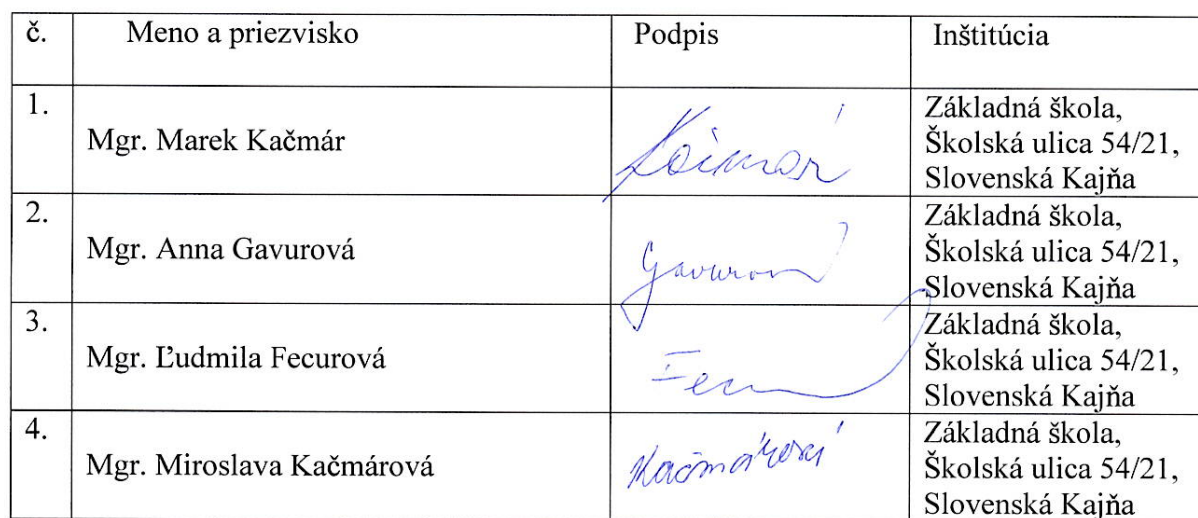 č. Meno a priezvisko Podpis Inštitúcia
1. Mgr. Marek Kačmár Kačmár Základná škola,
Školská ulica 54/21,
Slovenská Kajňa
2. Mgr. Anna Gavurová Gavurová Základná škola,
Školská ulica 54/21,
Slovenská Kajňa
3. Mgr. Ľudmila Fecurová Základná škola,
Školská ulica 54/21,
Slovenská Kajňa
4. Mgr. Miroslava Kačmárová Kačmárová Základná škola,
Školská ulica 54/21,
Slovenská Kajňa